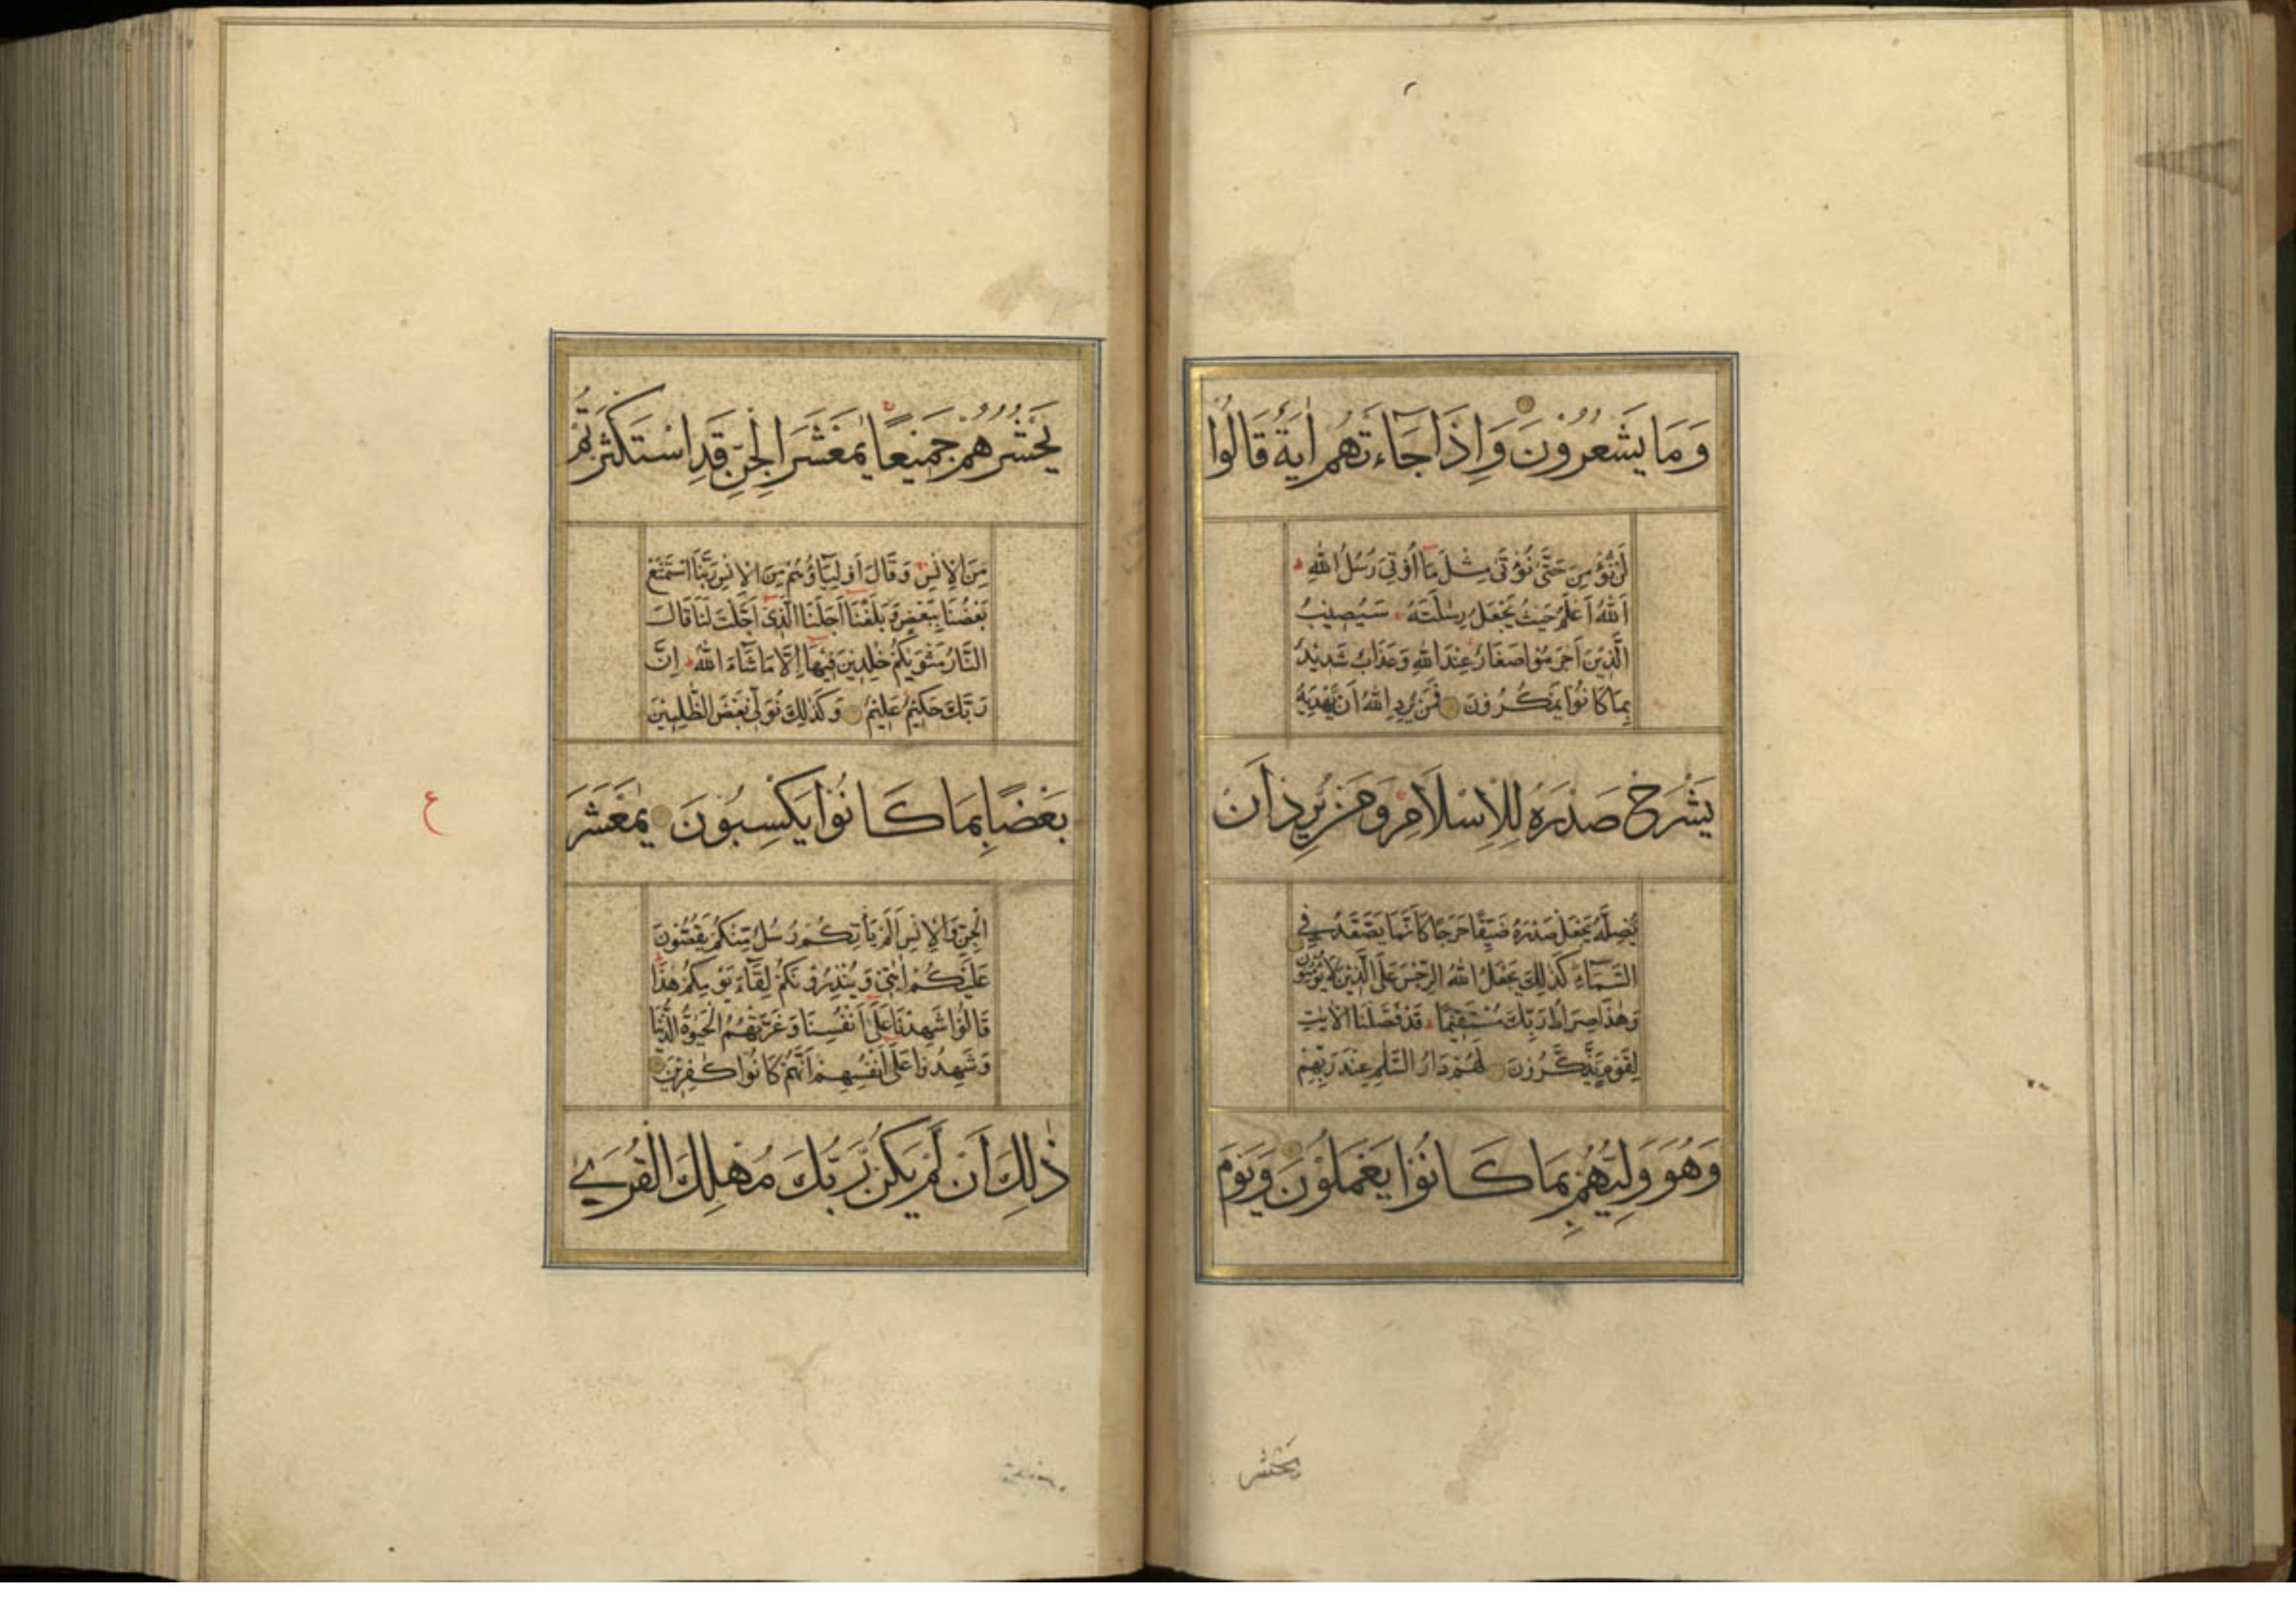 وَمَا يَشْعُرُوْنَ وَاِذَا جَآءَتْهُمْ اٰيَةٌ قَالُوْا
لَنْ نُّؤْمِنَ حَتّٰى نُؤْتٰى مِثْلَ مَآ اُوْتِيَ رُسُلُ اللّٰهِ
اَللّٰهُ اَعْلَمُ حَيْثُ يَجْعَلُ رِسٰلَتَهٗ سَيُصِيْبُ
الَّذِيْنَ اَجْرَمُوْا صَغَارٌ عِنْدَ اللّٰهِ وَعَذَابٌ شَدِيْدٌ
بِمَا كَانُوْا يَمْكُرُوْنَ فَمَنْ يُّرِدِ اللّٰهُ اَنْ يَّهْدِيَهٗ
يَشْرَحْ صَدْرَهٗ لِلْاِسْلَامِ وَمَنْ يُّرِدْ اَنْ
يُّضِلَّهٗ يَجْعَلْ صَدْرَهٗ ضَيِّقًا حَرَجًا كَاَنَّمَا يَصَّعَّدُ فِي
السَّمَآءِ كَذٰلِكَ يَجْعَلُ اللّٰهُ الرِّجْسَ عَلَى الَّذِيْنَ لَا يُؤْمِنُوْنَ
وَهٰذَا صِرَاطُ رَبِّكَ مُسْتَقِيْمًا قَدْ فَصَّلْنَا الْاٰيٰتِ
لِقَوْمٍ يَّذَّكَّرُوْنَ لَهُمْ دَارُ السَّلٰمِ عِنْدَ رَبِّهِمْ
وَهُوَ وَلِيُّهُمْ بِمَا كَانُوْا يَعْمَلُوْنَ وَيَوْمَ
يَحْشُر
يَحْشُرُهُمْ جَمِيْعًا يٰمَعْشَرَ الْجِنِّ قَدِ اسْتَكْثَرْتُمْ
مِّنَ الْاِنْسِ وَقَالَ اَوْلِيٰٓؤُهُمْ مِّنَ الْاِنْسِ رَبَّنَا اسْتَمْتَعَ
بَعْضُنَا بِبَعْضٍ وَّبَلَغْنَآ اَجَلَنَا الَّذِيْٓ اَجَّلْتَ لَنَا قَالَ
النَّارُ مَثْوٰىكُمْ خٰلِدِيْنَ فِيْهَآ اِلَّا مَا شَآءَ اللّٰهُ اِنَّ
رَبَّكَ حَكِيْمٌ عَلِيْمٌ وَكَذٰلِكَ نُوَلِّيْ بَعْضَ الظّٰلِمِيْنَ
بَعْضًا بِمَا كَانُوْا يَكْسِبُوْنَ يٰمَعْشَرَ
ع
الْجِنِّ وَالْاِنْسِ اَلَمْ يَأْتِكُمْ رُسُلٌ مِّنْكُمْ يَقُصُّوْنَ
عَلَيْكُمْ اٰيٰتِيْ وَيُنْذِرُوْنَكُمْ لِقَآءَ يَوْمِكُمْ هٰذَا
قَالُوْا شَهِدْنَا عَلٰٓى اَنْفُسِنَا وَغَرَّتْهُمُ الْحَيٰوةُ الدُّنْيَا
وَشَهِدُوْا عَلٰٓى اَنْفُسِهِمْ اَنَّهُمْ كَانُوْا كٰفِرِيْنَ
ذٰلِكَ اَنْ لَّمْ يَكُنْ رَّبُّكَ مُهْلِكَ الْقُرٰى